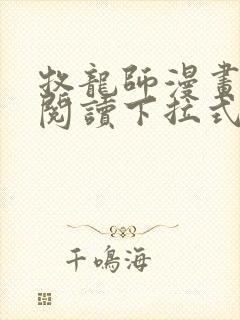 牧龍師漫畫
閱讀下拉式
千鳴海